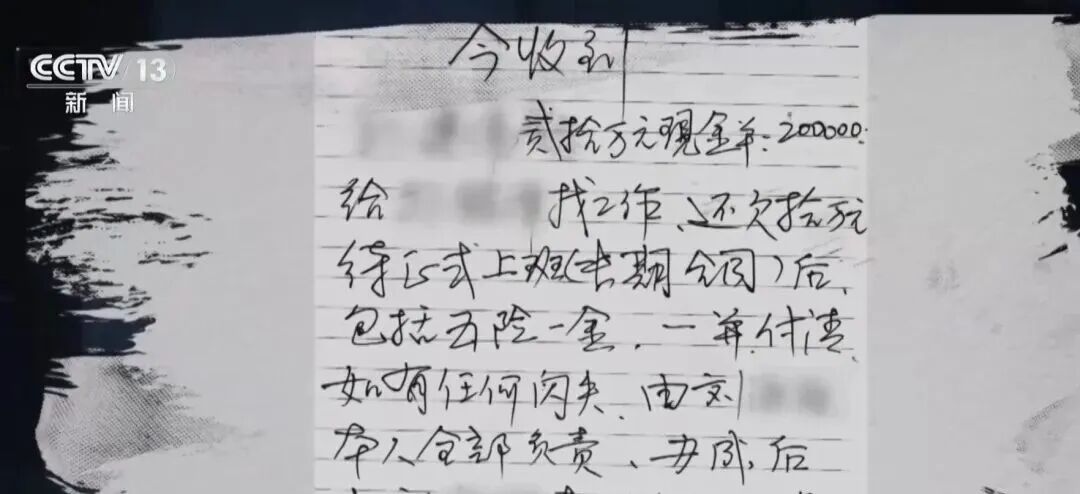 CCTV 13
新闻
今收到
贰拾万元现金羊:200000.
给 找工作、还欠拾万元
待正式上班(长期合同)后、
包括五险一金,一并付清、
如有任何闪失、由刘
本人全部负责、办成,后